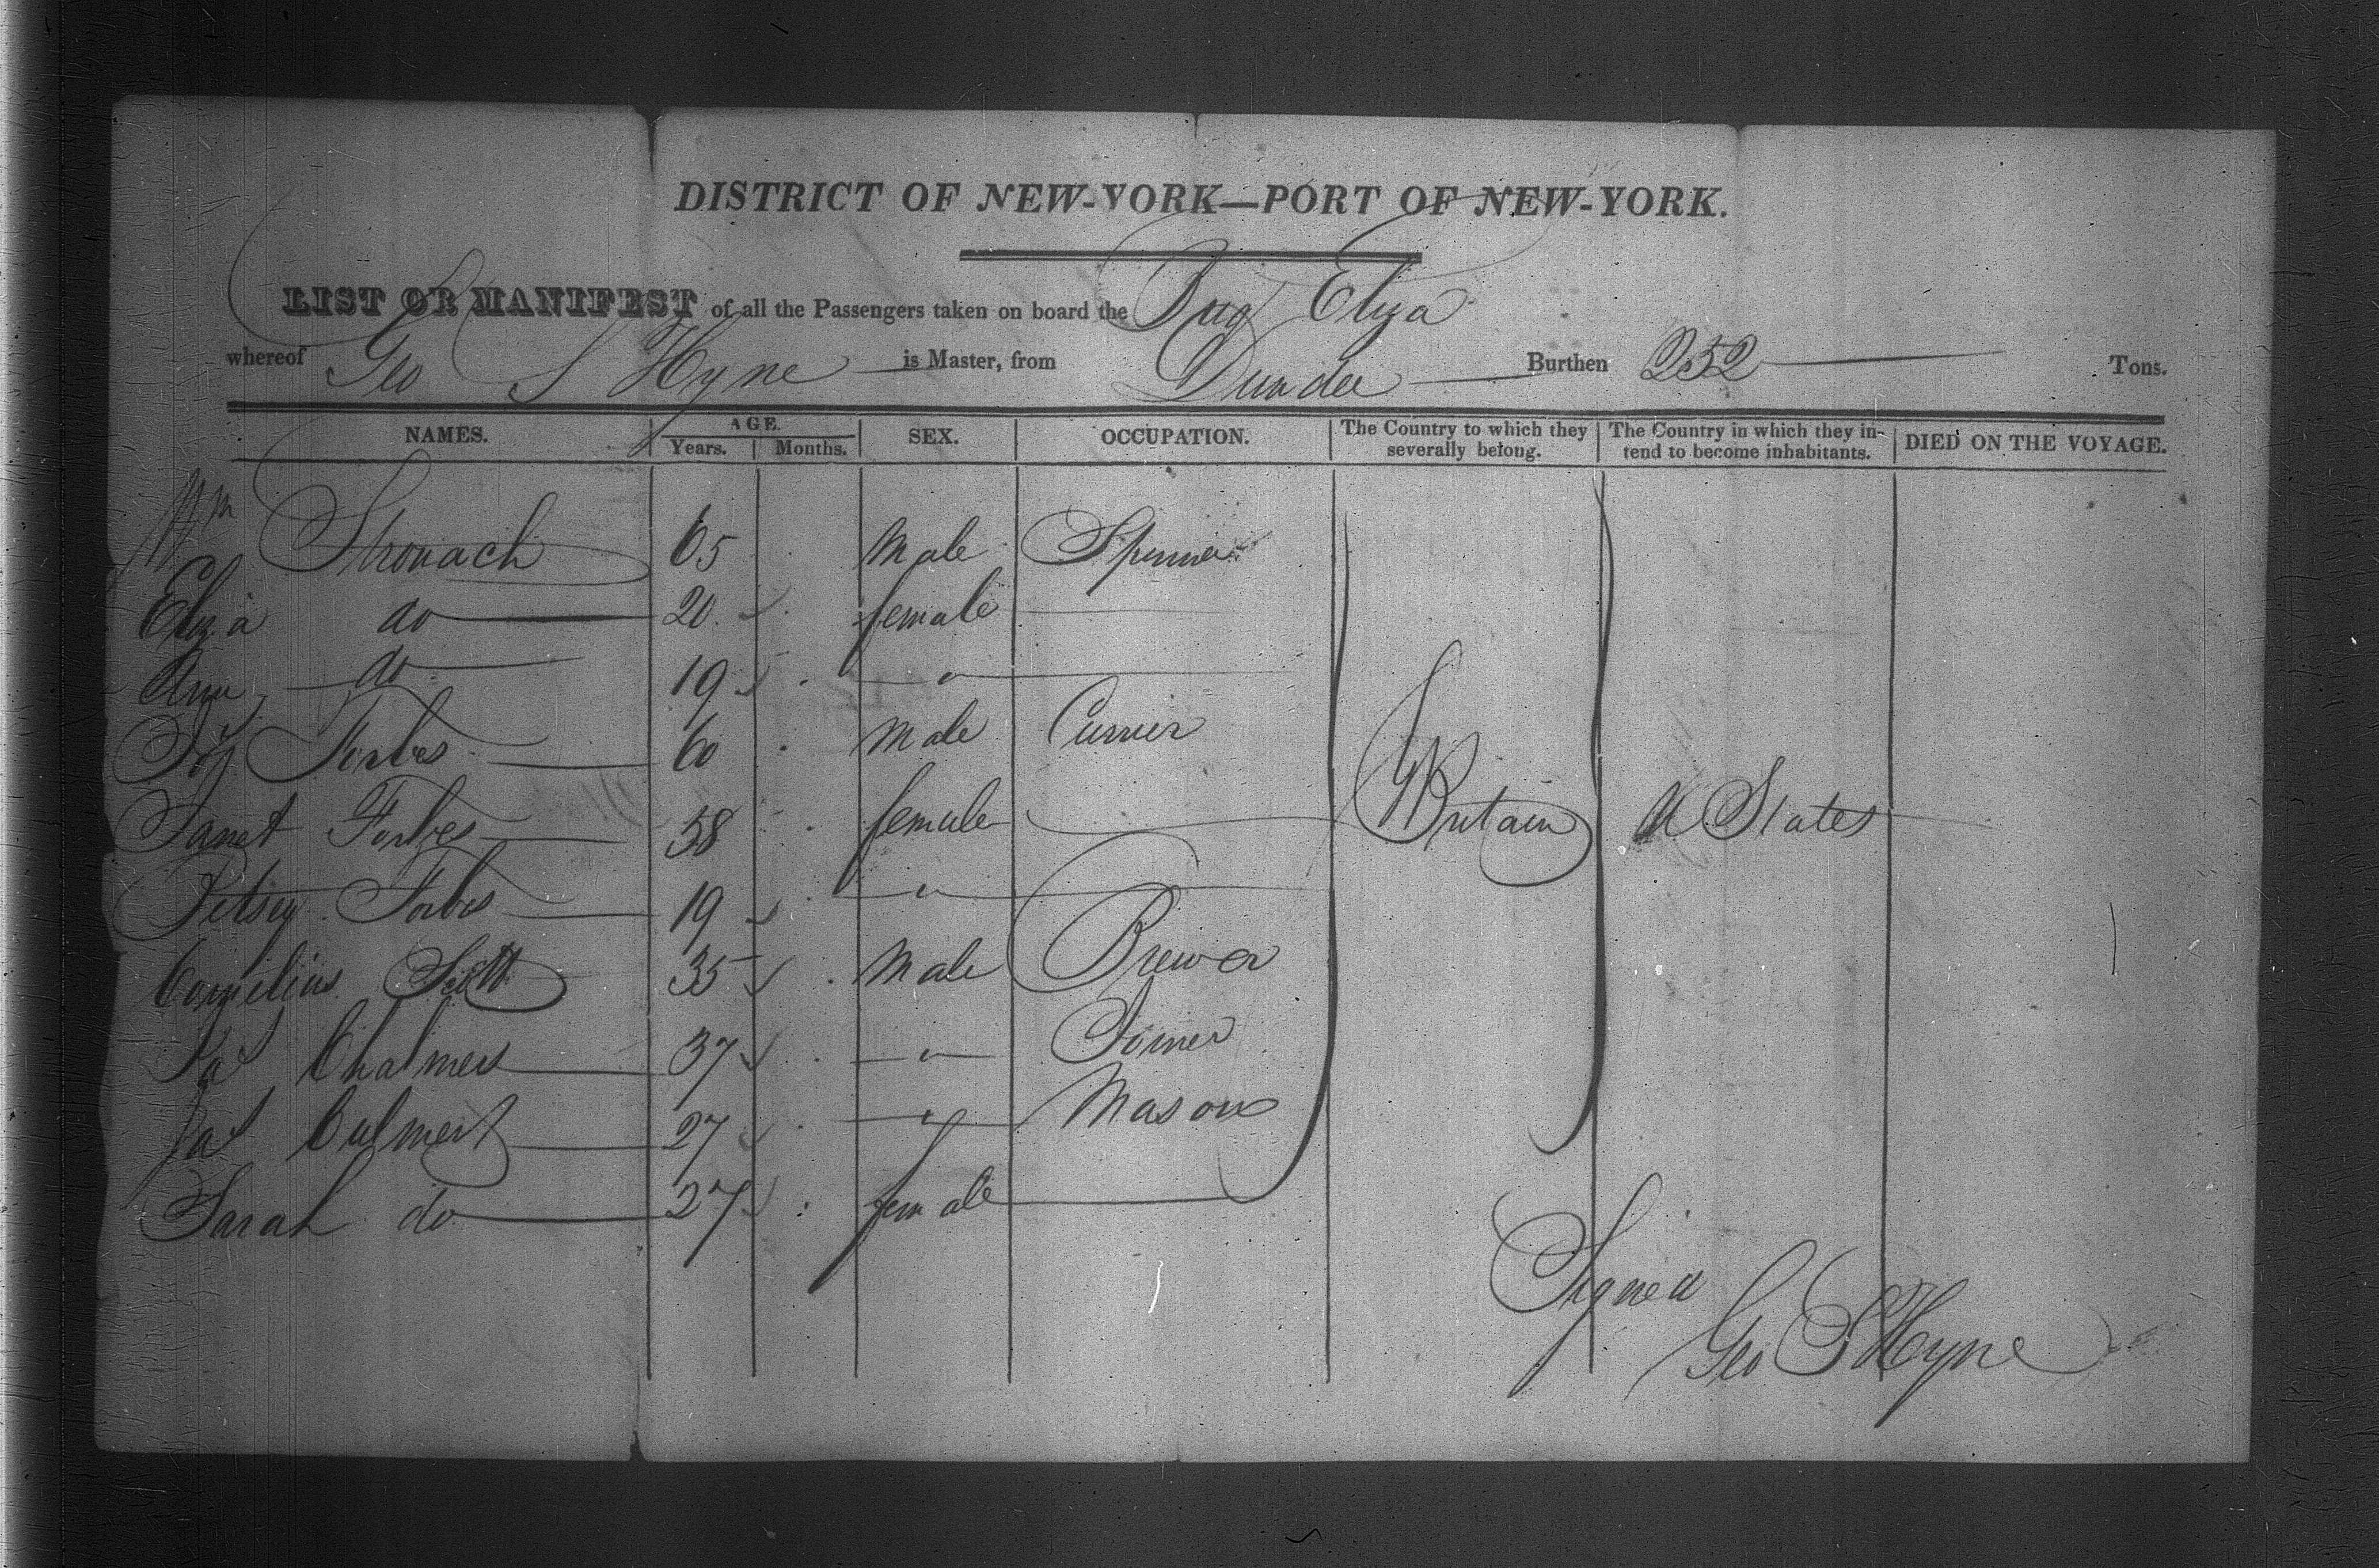 DISTRICT OF NEW-YORK—PORT OF NEW-YORK.
LIST OR MANIFEST of all the Passengers taken on board the Brig Eliza
whereof Geo S Hyne is Master, from Dundee Burthen 252 Tons.
NAMES. AGE. Years. Months. SEX. OCCUPATION. The Country to which they severally belong. The Country in which they intend to become inhabitants. DIED ON THE VOYAGE.
Wm Stronach 65 Male Spinner
Eliza do 20 female
Ann do 19 "
Forbes 60 Male Currier
Janet Forbes 58 female G Britain U States
Betsey Forbes 19 "
Cornelius Scott 35 Male Brewer
Jas Chalmers 37 " Joiner
Jas 27 " Mason
Sarah do 27 female
Signed
Geo S Hyne